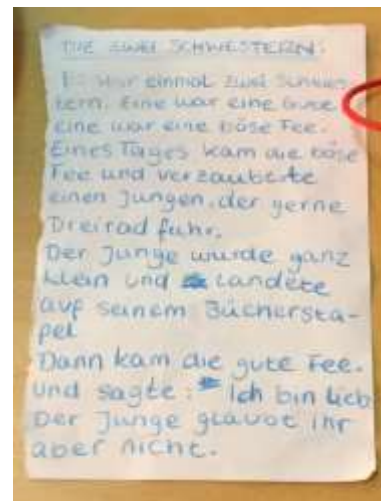 DIE ZWEI SCHWESTERN:
Es war einmal zwei Schwes-
tern. Eine war eine Gute
eine war eine böse Fee.
Eines Tages kam die böse
Fee und verzauberte
einen Jungen, der gerne
Dreirad fuhr.
Der Junge wurde ganz
klein und landete
auf seinem Büchersta-
pel
Dann kam die gute Fee.
und sagte: Ich bin lieb
Der Junge glaubt ihr
aber nicht.